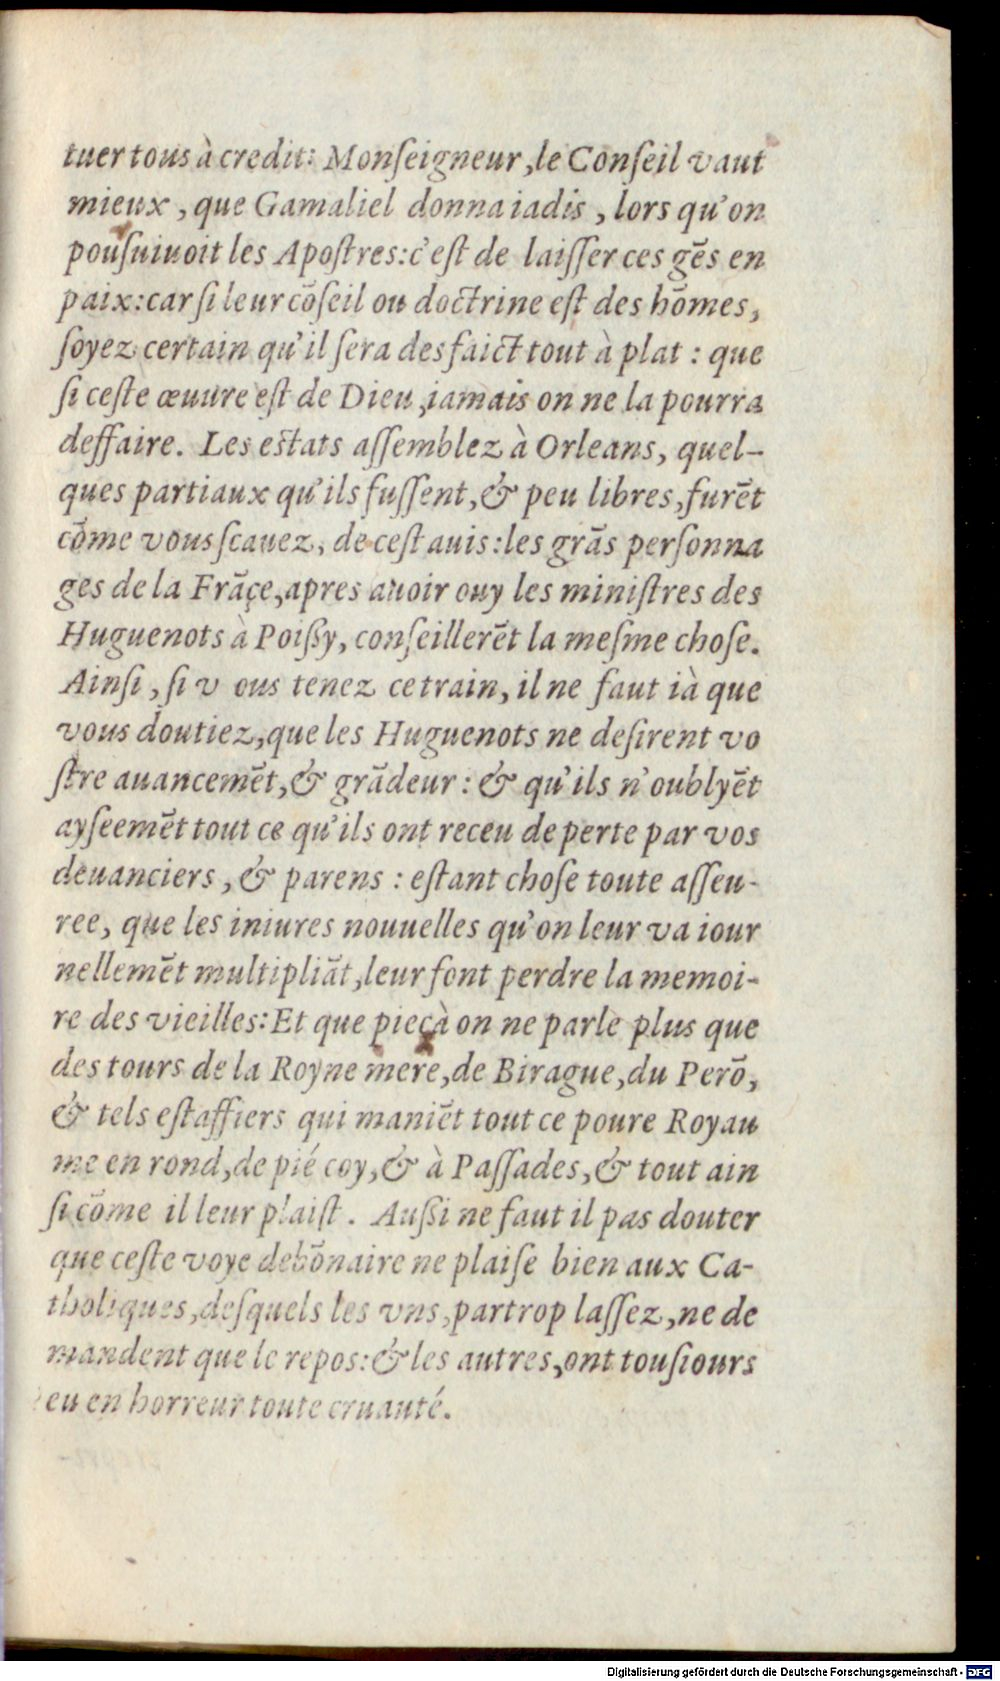 tuer tous à credit: Monſeigneur, le Conſeil vaut
mieux, que Gamaliel donna iadis, lors qu'on
pouſuiuoit les Apoſtres: c'eſt de laiſſer ces gēs en
paix: car ſi leur cōſeil ou doctrine eſt des hōmes,
ſoyez certain qu'il ſera desfaict tout à plat: que
ſi ceſte œuure eſt de Dieu, iamais on ne la pourra
deffaire. Les eſtats aſſemblez à Orleans, quel-
ques partiaux qu'ils fuſſent, & peu libres, furēt
cōme vous ſcauez, de ceſt auis: les grās perſonna
ges de la Frāçe, apres auoir ouy les miniſtres des
Huguenots à Poißy, conſeillerēt la meſme choſe.
Ainſi, ſi v ous tenez ce train, il ne faut ià que
vous doutiez, que les Huguenots ne deſirent vo
ſtre auancemēt, & grādeur: & qu'ils n'oublyēt
ayſeemēt tout ce qu'ils ont receu de perte par vos
deuanciers, & parens: eſtant choſe toute aſſeu-
ree, que les iniures nouuelles qu'on leur va iour
nellemēt multipliāt, leur font perdre la memoi-
re des vieilles: Et que pieçà on ne parle plus que
des tours de la Royne mere, de Birague, du Perō,
& tels eſtaffiers qui maniēt tout ce poure Royau
me en rond, de pié coy, & à Paſſades, & tout ain
ſi cōme il leur plaiſt. Außi ne faut il pas douter
que ceſte voye debōnaire ne plaiſe bien aux Ca-
tholiques, deſquels les vns, par trop laſſez, ne de
mandent que le repos: & les autres, ont touſiours
eu en horreur toute cruauté.
Digitalisierung gefördert durch die Deutsche Forschungsgemeinschaft - DFG